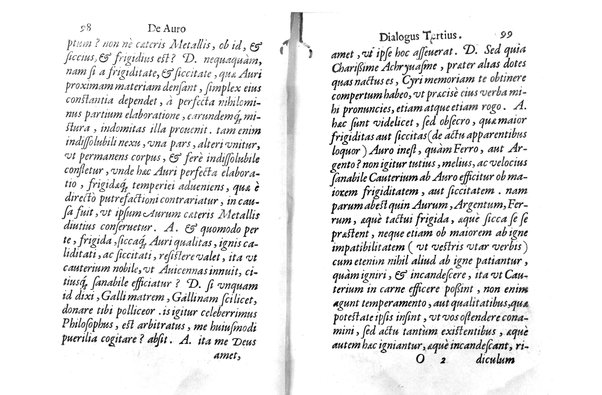 98 De Auro
ptum? non nè cæteris Metallis, ob id, &
siccius, & frigidius est? D. nequaquàm,
nam si a frigiditate, & siccitate, quæ Auri
proximam materiam densant, simplex eius
constantia dependet, à perfecta nihilomi-
nus partium elaboratione, earundemq; mi-
stura, indomitas illa prouenit. tam enim
indissolubili nexu, vna pars, alteri vnitur,
vt permanens corpus, & ferè indissolubile
consletur, vnde hæc Auri perfecta elabora-
tio, frigidæq; temperiei adueniens, quæ è
directo putrefactioni contrariatur, in cau-
sa fuit, vt ipsum Aurum cæteris Metallis
diutius conseruetur. A. & quomodo per
te, frigida, siccaq; Auri qualitas, ignis ca-
liditati, ac siccitati, resistere valet, ita vt
cauterium nobile, vt Auicennas innuit, ci-
tiusq; sanabile efficiatur? D. si vnquam
id dixi, Galli matrem, Gallinam scilicet,
donare tibi polliceor. is igitur celeberrimus
Philosophus, est arbitratus, me huiusmodi
puerilia cogitare? absit. A. ita me Deus
amet,
Dialogus Tertius. 99
amet, vt ipse hoc asseuerat. D. Sed quia
Charissime Achryuasme, præter alias dotes
quas nactus es, Cyri memoriam te obtinere
compertum habeo, vt præcisè eius verba mi-
hi pronuncies, etiam atque etiam rogo. A.
hæc sunt videlicet, sed obsecro, quæ maior
frigiditas aut siccitas (de actu apparentibus
loquor) Auro inest, quàm Ferro, aut Ar-
gento? non igitur tutius, melius, ac velocius
sanabile Cauterium ab Auro efficitur ob ma-
iorem frigiditatem, aut siccitatem. nam
parum abest quin Aurum, Argentum, Fer-
rum, æquè tactui frigida, æquè sicca se se
præstent, neque etiam ob maiorem ab igne
impatibilitatem ( vt vestris vtar verbis)
cum etenim nihil aliud ab igne patiantur,
quàm igniri, & incandescere, ita vt Cau-
terium in carne efficere possint, non enim
agunt temperamento, aut qualitatibus, quæ
potestate ipsis insint, vt vos ostendere cona-
mini, sed actu tantùm existentibus, æquè
autem hæc igniantur, æquè incandescant, ri-
O 2 diculum